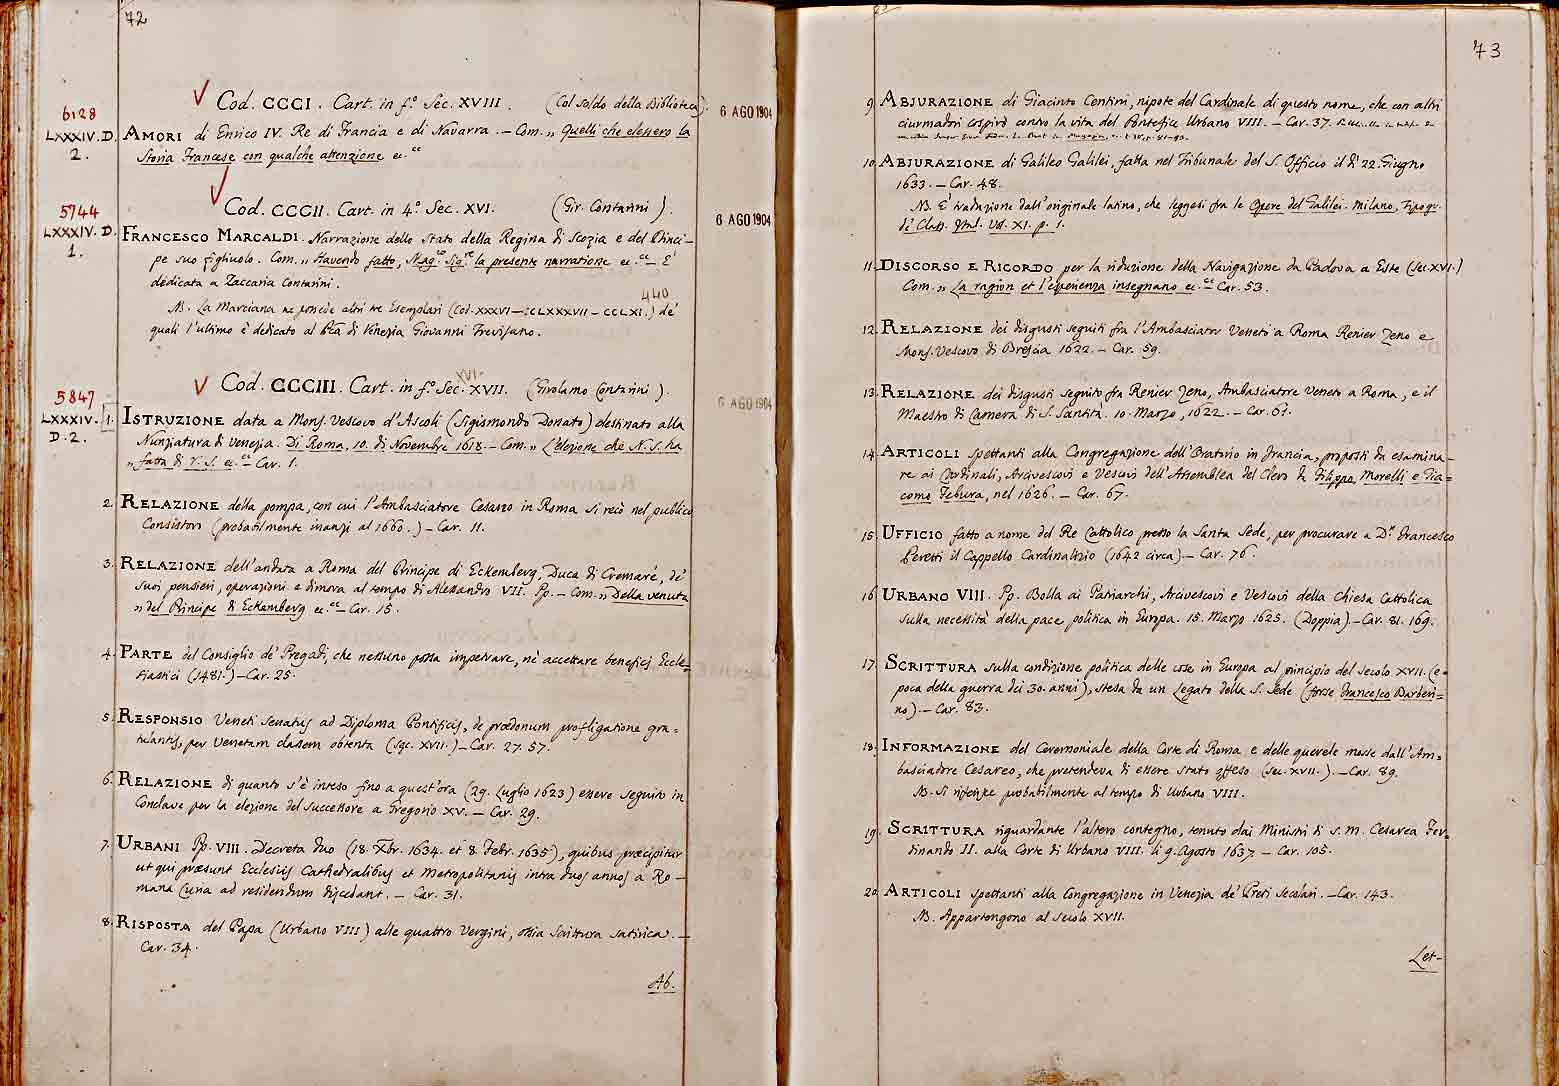 72
6128
LXXXIV.D.
2.
Cod. CCCI. Cart. in f.º Sec. XVIII. (Col soldo della Biblioteca).
6 AGO 1904
AMORI di Enrico IV. Re di Francia e di Navarra. — Com. „ Quelli che elessero la
Storia Francese con qualche attenzione ec.
5744
LXXXIV. D.
1.
Cod. CCCII. Cart. in 4º. Sec. XVI. (Gir. Contarini).
6 AGO 1904
FRANCESCO MARCALDI. Narrazione dello Stato della Regina di Scozia e del Princi-
pe suo figliuolo. Com. „ Havendo fatto, Mag.co Sig.re la presente narratione ec. — E'
dedicata a Zaccaria Contarini.
440
NB. La Marciana ne possède altri tre Esemplari (Cod. XXXVI — CLXXXVII — CCLXI.) de'
quali l'ultimo è dedicato al di Venezia Giovanni Trevisano.
XVI.
5847
LXXXIV.
D. 2.
Cod. CCCIII. Cart. in f.º Sec. XVII. (Girolamo Contarini).
6 AGO 1904
1. ISTRUZIONE data a Mons. Vescovo d'Ascoli (Sigismondo Donato) destinato alla
Nunziatura di Venezia. Di Roma, 10. di Novembre 1618. — Com. „ L'elezione che N. S. ha
„ fatta di V. S. ec. — Car. 1.
2. RELAZIONE della pompa, con cui l'Ambasciatore Cesareo in Roma si recò nel publico
Consistoro (probabilmente inanzi al 1660.) — Car. 11.
3. RELAZIONE dell'andata a Roma del Principe di Eckemberg, Duca di Cremaré, de'
suoi pensieri, operazioni e dimora al tempo di Alessandro VII. Pp. — Com. „ Della venuta
„ del Principe di Eckamberg ec. — Car. 15.
4. PARTE del Consiglio de' Pregadi, che nessuno possa impetrare, nè accettare beneficj Eccle=
siastici (1481.) — Car. 25.
5. RESPONSIO Veneti Senatus ad Diploma Pontificis, de prædonum profligatione gra=
tulantis, per Venetam classem obtenta (sæc. XVII.) — Car. 27. 57.
6. RELAZIONE di quanto s'è inteso fino a quest'ora (29. Luglio 1623) essere seguito in
Conclave per la elezione del successore a Gregorio XV. — Car. 29.
7. URBANI Pp. VIII. Decreta duo (18. Xbr. 1634. et 8. Febr. 1635), quibus præcipitur
ut qui præsunt Ecclesiis Cathedralibus et Metropolitanis intra duos annos a Ro—
mana Curia ad residendum discedant. — Car. 31.
8. RISPOSTA del Papa (Urbano VIII) alle quattro Vergini, ossia Scrittura satirica. —
Car. 34.
Ab.
73
9. ABJURAZIONE di Giacinto Centini, nipote del Cardinale di questo nome, che con altri
ciurmadori cospirò contro la vita del Pontefice Urbano VIII. — Car. 37.
10. ABJURAZIONE di Galileo Galilei, fatta nel Tribunale del S. Officio il dì 22. Giugno
1633. — Car. 48.
NB. E' traduzione dall'originale latino, che leggesi fra le Opere del Galilei. Milano, Tipogr.
de' Class. Ital. Vol. XI. p. 1.
11. DISCORSO E RICORDO per la riduzione della Navigazione da Padova a Este (Sec. XVI.)
Com. „ La ragion et l'esperienza insegnano ec. — Car. 53.
12. RELAZIONE dei disgusti seguiti fra l'Ambasciator Veneto a Roma Renier Zeno e
Mons. Vescovo di Brescia 1622. — Car. 59.
13. RELAZIONE dei disgusti seguito fra Renier Zeno, Ambasciatore Veneto a Roma, e il
Maestro di Camera di S. Santità. 10. Marzo, 1622. — Car. 61.
14. ARTICOLI spettanti alla Congregazione dell'Oratorio in Francia, proposti da esamina—
re ai Cardinali, Arcivescovi e Vescovi dell'Assemblea del Clero da Filippo Morelli e Gia=
como Febura, nel 1626. — Car. 67.
15. UFFICIO fatto a nome del Re Cattolico presso la Santa Sede, per procurare a D.n Francesco
Peretti il Cappello Cardinalizio (1642 circa) — Car. 76.
16. URBANO VIII. Pp. Bolla ai Patriarchi, Arcivescovi e Vescovi della Chiesa Cattolica
sulla necessità della pace politica in Europa. 15. Marzo 1625. (Doppia) — Car. 81. 169.
17. SCRITTURA sulla condizione politica delle cose in Europa al principio del secolo XVII. (e=
poca della guerra dei 30. anni), stesa da un Legato della S. Sede (forse Francesco Barberi=
no). — Car. 83.
18. INFORMAZIONE del Ceremoniale della Corte di Roma e delle querele mosse dall'Am=
basciadore Cesareo, che pretendeva di essere stato offeso (sec. XVII.). — Car. 89.
NB. Si riferisce probabilmente al tempo di Urbano VIII.
19. SCRITTURA riguardante l'altero contegno, tenuto dai Ministri di S. M. Cesarea Fer=
dinando II. alla Corte di Urbano VIII. li 9. Agosto 1637. — Car. 105.
20. ARTICOLI spettanti alla Congregazione in Venezia de' Preti Secolari. — Car. 143.
NB. Appartengono al Secolo XVII.
Let-